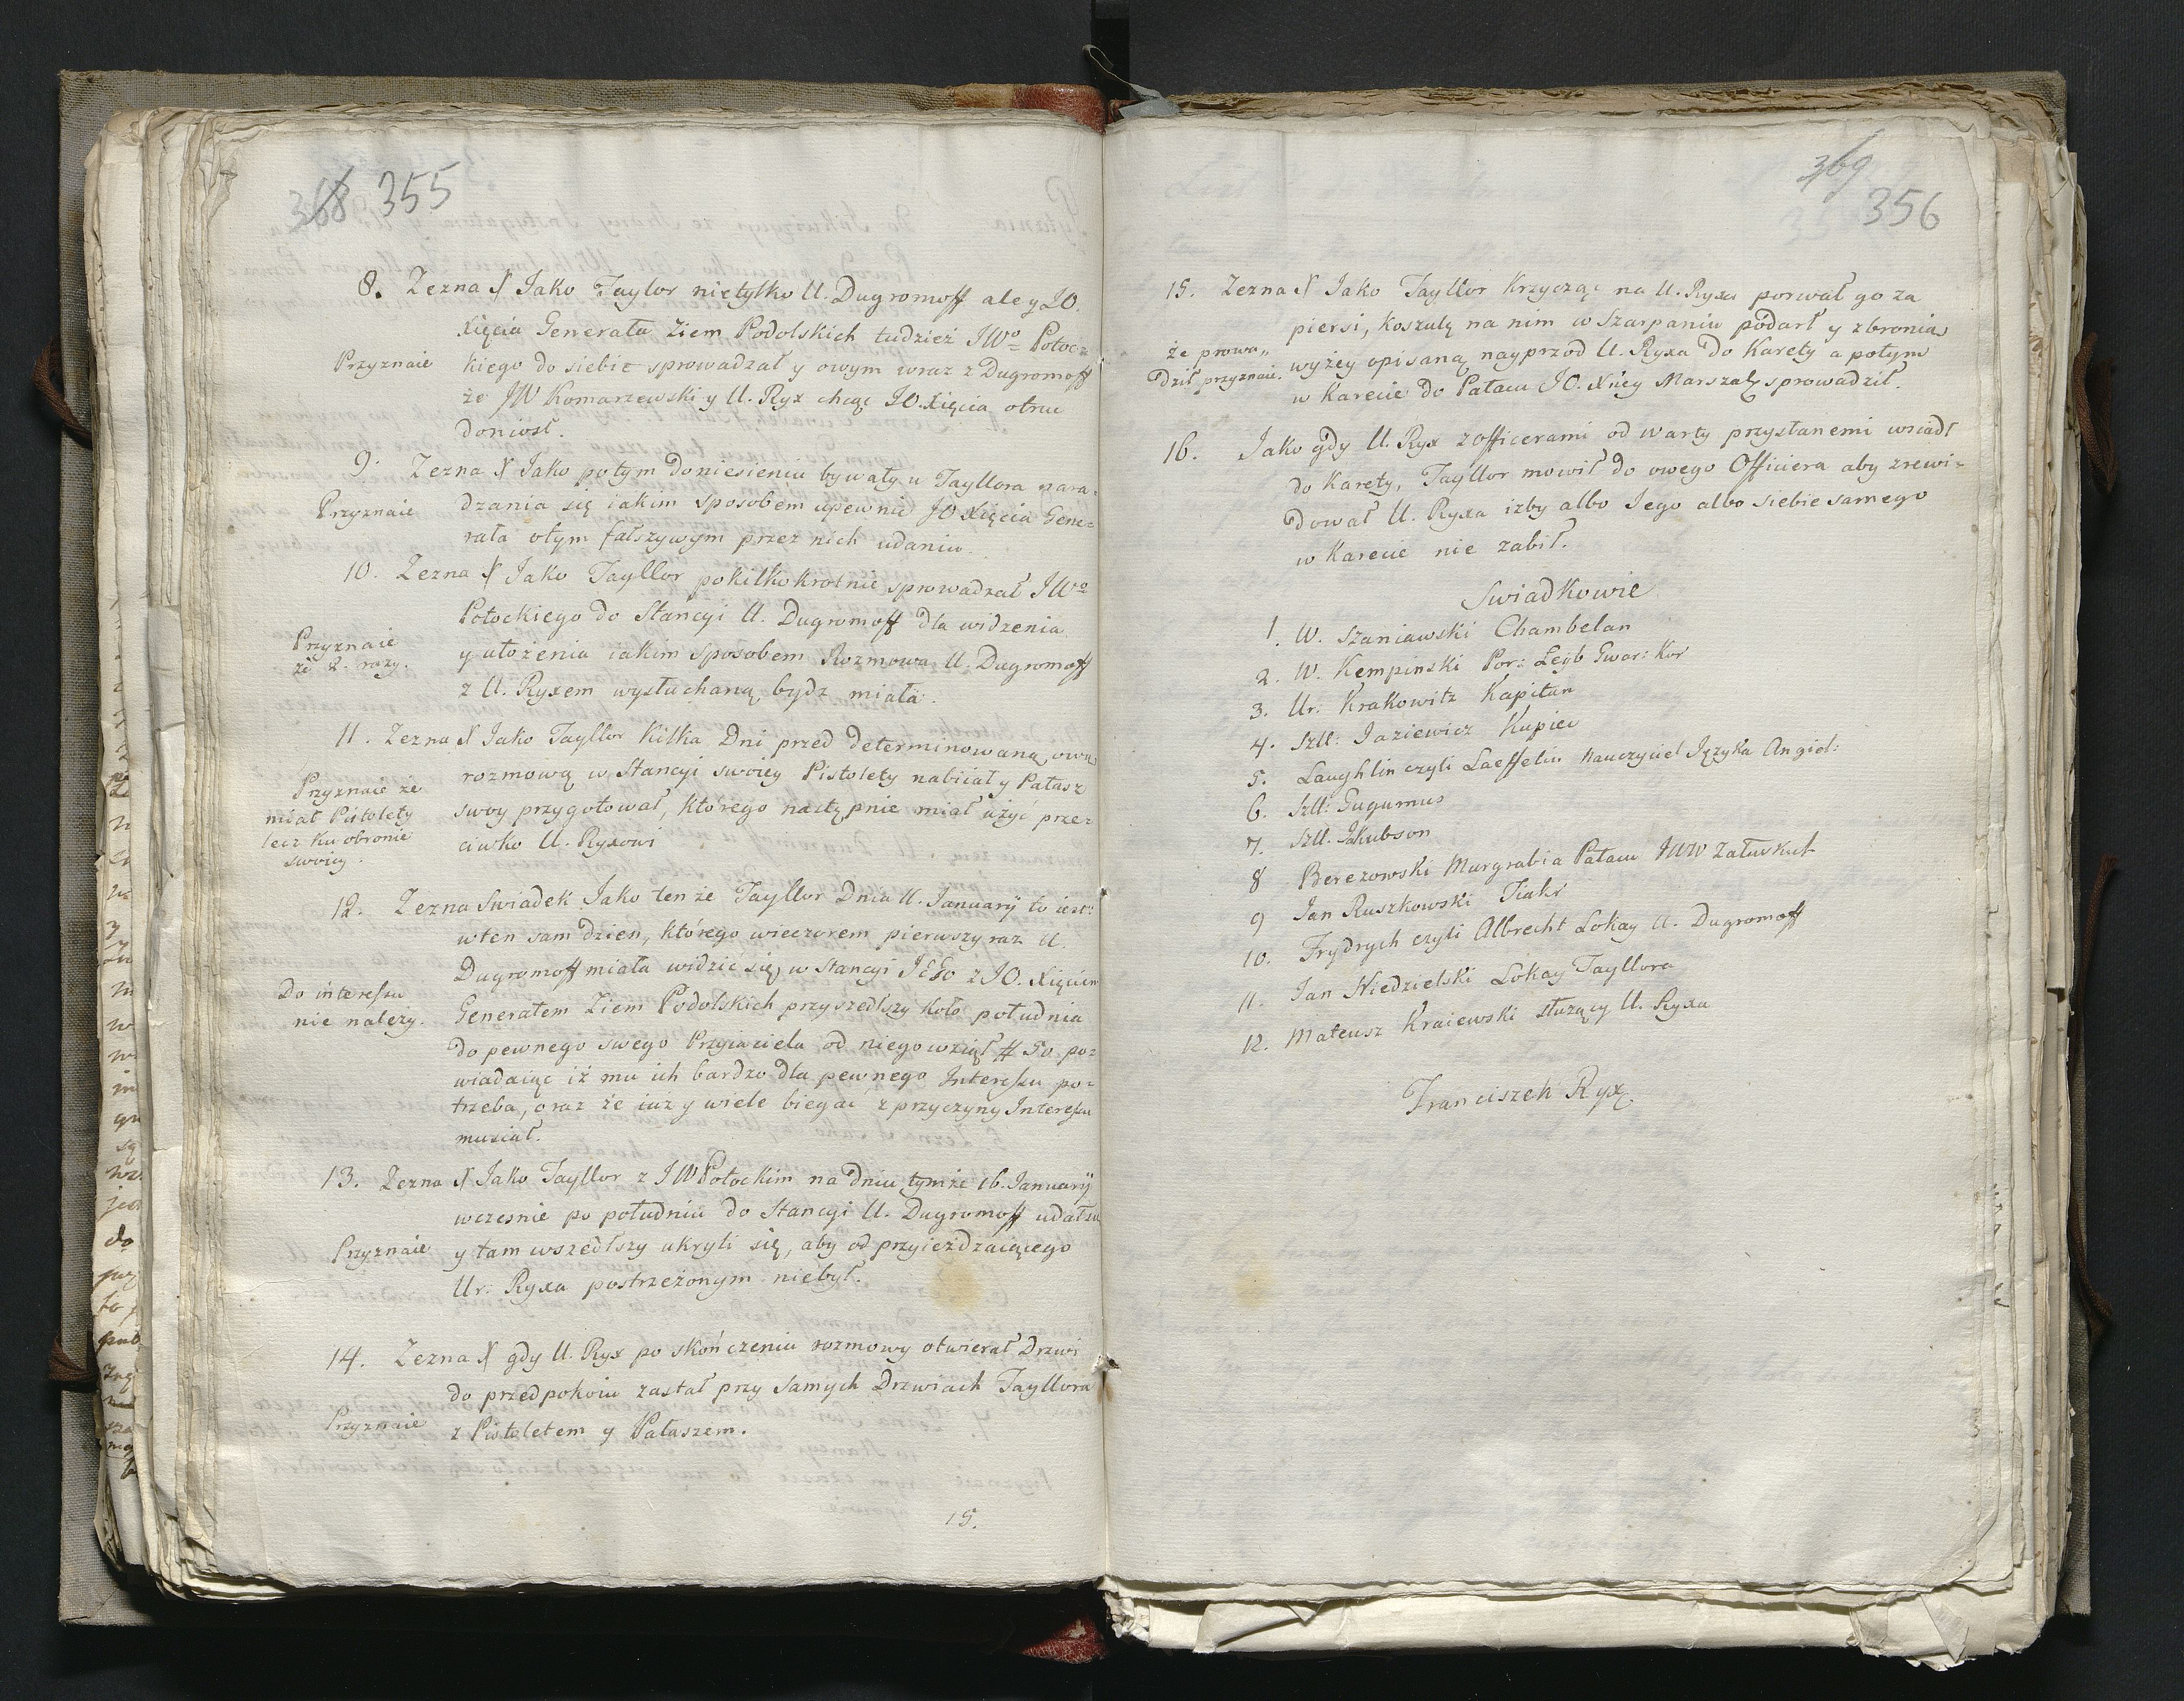 368 355
8. Zezna X Jako Taylor nietylko U. Dugromoff ale y JO.
Xięcia Generała Ziem Podolskich tudzież JWo Potoc=
Przyznaie
kiego do siebie sprowadzał y owym wraz z Dugromoff
że JW Komarzewski y U. Ryx chcąc JO. Xięcia otruc
doniosł.
9. Zezna X Jako potym doniesieniu bywały u Tayllora nara=
Przyznaie
dzania się iakim sposobem upewnić JO Xięcia Gene=
rała otym fałszywym przez nich udaniu.
10. Zezna X Jako Tayllor pokilkokrotnie sprowadzał JWo
Potockiego do Stancyi U. Dugromoff dla widzenia
Przyznaie
że 2. razy.
y ułożenia iakim sposobem Rozmowa U. Dugromoff
z U. Ryxem wysłuchaną bydz miała.
11. Zezna X Jako Tayllor Kilka Dni przed determinowaną ową
rozmową w Stancyi swoiey Pistolety nabiiał y Pałasz
Przyznaie że
miał Pistolety
lecz ku obronie
swoiey.
swoy przygotował, którego następnie miał użyć prze=
ciwko U. Ryxowi
12. Zezna Swiadek Jako ten że Tayllor Dnia 11. January to iest:
w ten sam dzien, którego wieczorem pierwszy raz U.
Dugromoff miała widzić się w Stancyi JEGo z JO. Xięciem
Do interessu
nie należy.
Generałem Ziem Podolskich przyszedłszy koło południa
do pewnego swego Przyiaciela od niego wziął # 50 po=
wiadaiąc iż mu ich bardzo dla pewnego Interessu po=
trzeba, oraz że iuz y wiele biegać z przyczyny Interessu
musiał.
13. Zezna X Jako Tayllor z JW Potockim na dniu tymże 16. January
wczesnie po południu do Stancyi U. Dugromoff udał sie
Przyznaie
y tam wszedłszy ukryli się, aby od przyieżdzaiącego
Ur. Ryxa postrzeżonym niebył.
14. Zezna X gdy U. Ryx po skończeniu rozmowy otwierał Drzwi
do przedpokoiu zastał przy samych Drzwiach Tayllora
Przyznaie
z Pistoletem y Pałaszem.
15.
369
356
15. Zezna X Jako Tayllor Krzycząc na U. Ryxa porwał go za
piersi, koszulę na nim w Szarpaniu podarł y zbronią
że prowa„
dził przyznaie.
wyżey opisaną nayprzod U. Ryxa do Karety a potym
w Karecie do Pałacu JO. Xney Marszał: sprowadził.
16. Jako gdy U. Ryx z officerami od warty przysłanemi wsiadł
do Karety, Tayllor mowił do owego Officiera aby zrewi=
dował U. Ryxa izby albo Jego albo siebie samego
w Karecie nie zabił.
Swiadkowie
1. W. Szaniawski Chambelan
2. W. Kempinski Por: Leyb Gwar: Kor
3. Ur: Krakowitz Kapitan
4. Szll: Jaziewicz Kupiec
5. Laughlin czyli Laeffelin Nauczyciel Języka Angiel:
6. Szll: Gugumus
7. Szll. Jakubson
8 Berezowski Murgrabia Pałacu JWW Załuskich
9 Jan Ruszkowski Fiakr
10. Frydrych czyli Albrecht Lokay U. Dugromoff
11. Jan Niedzielski Lokay Tayllora
12. Mateusz Kraiewski służący U. Ryxa
Franciszek Ryx.